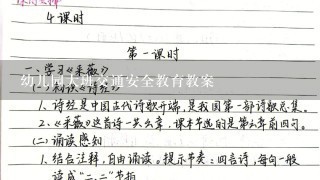 4课时
第一课时
一、学习《采薇》
幼儿园大班交通安全教育教案
(一)初识《诗经》
1、诗经是中国古代诗歌开端,是我国第一部诗歌总集。
2、《采薇》这首诗一共六章,课本节选的是第六章前四句。
(二)诵读感知
1、结合注释,自由诵读。提示节奏:四言诗,每句一般
读成“二、二”节拍